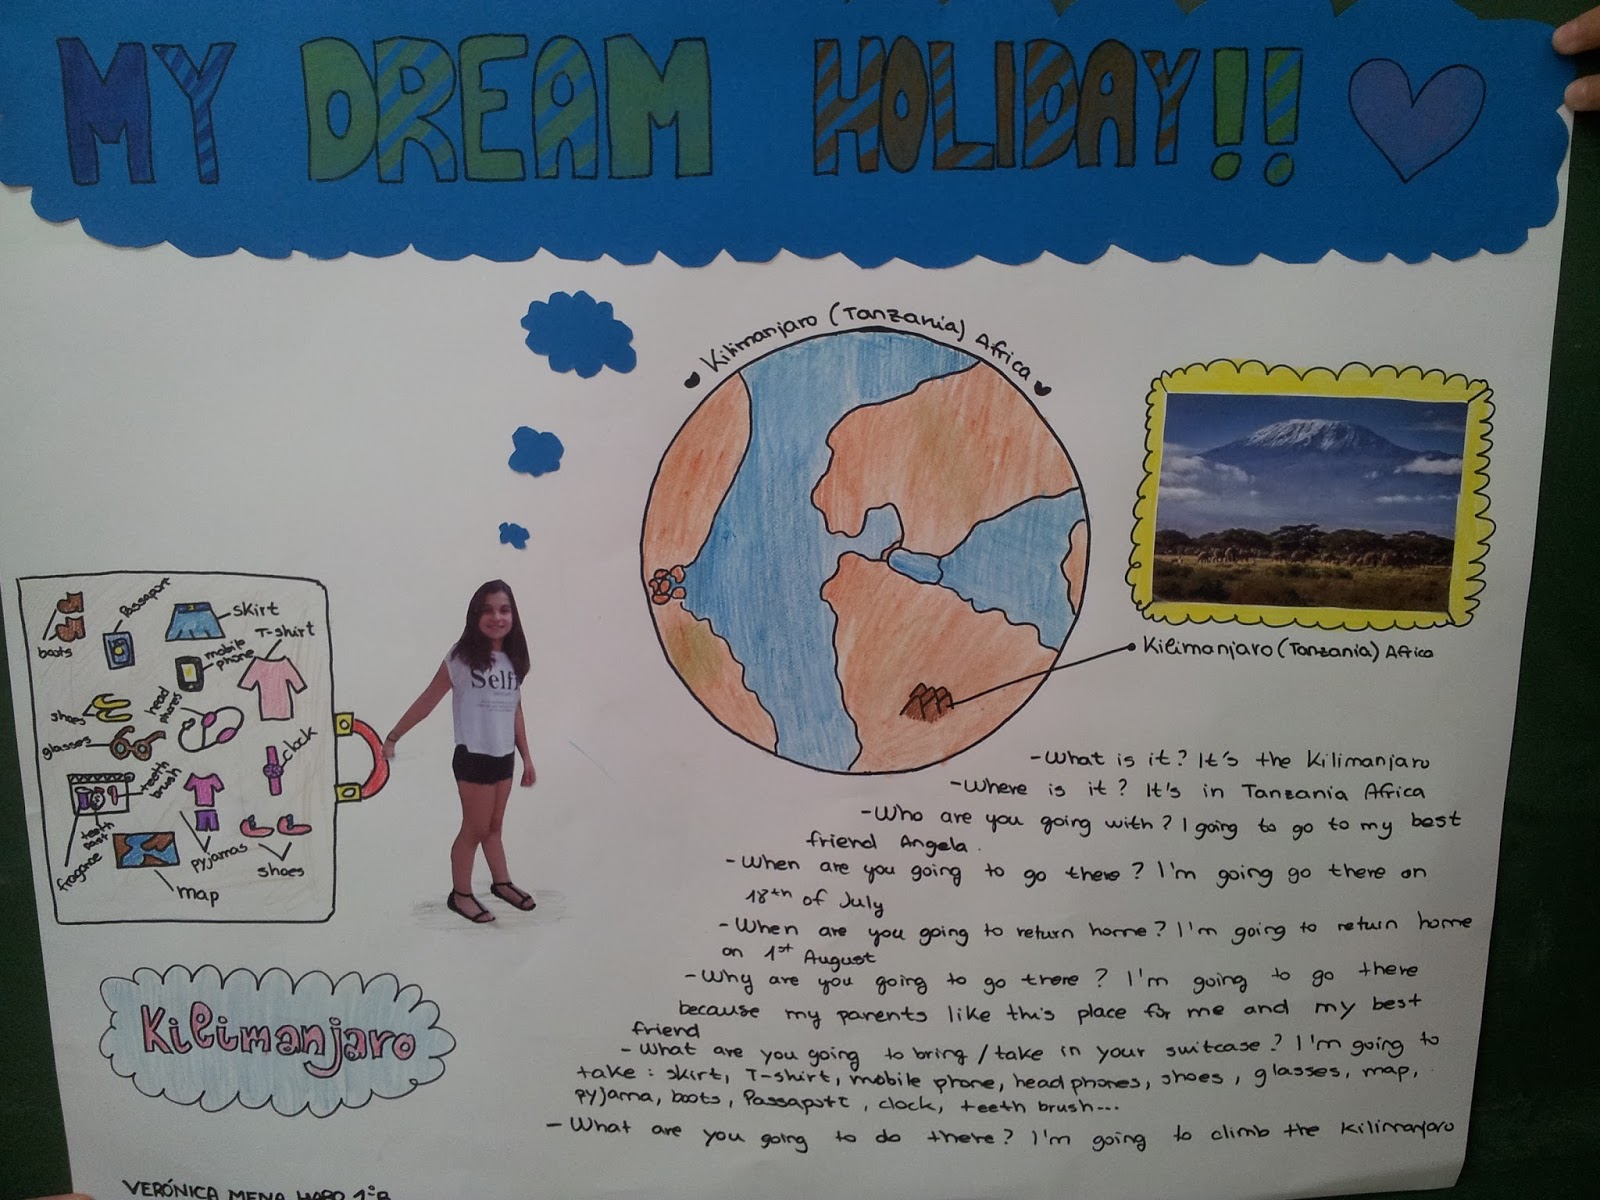 MY DREAM HOLIDAY!!
Kilimanjaro (Tanzania) Africa
Kilimanjaro (Tanzania) Africa
boots
Passaport
skirt
mobile
phone
T-shirt
shoes
head
phones
glasses
clock
teeth
brush
teeth
past
fragance
map
pyjamas
shoes
Selfi
Kilimanjaro
-What is it? It's the Kilimanjaro
-Where is it? It's in Tanzania Africa
-Who are you going with? I going to go to my best
friend Angela.
-When are you going to go there? I'm going go there on
18th of July
-When are you going to return home? I'm going to return home
on 1st August
-Why are you going to go there? I'm going to go there
because my parents like this place for me and my best
friend
-What are you going to bring/take in your suitcase? I'm going to
take: skirt, T-shirt, mobile phone, headphones, shoes, glasses, map,
pyjama, boots, Passaport, clock, teeth brush...
-What are you going to do there? I'm going to climb the Kilimanjaro
VERÓNICA MENA HARO 1ºB